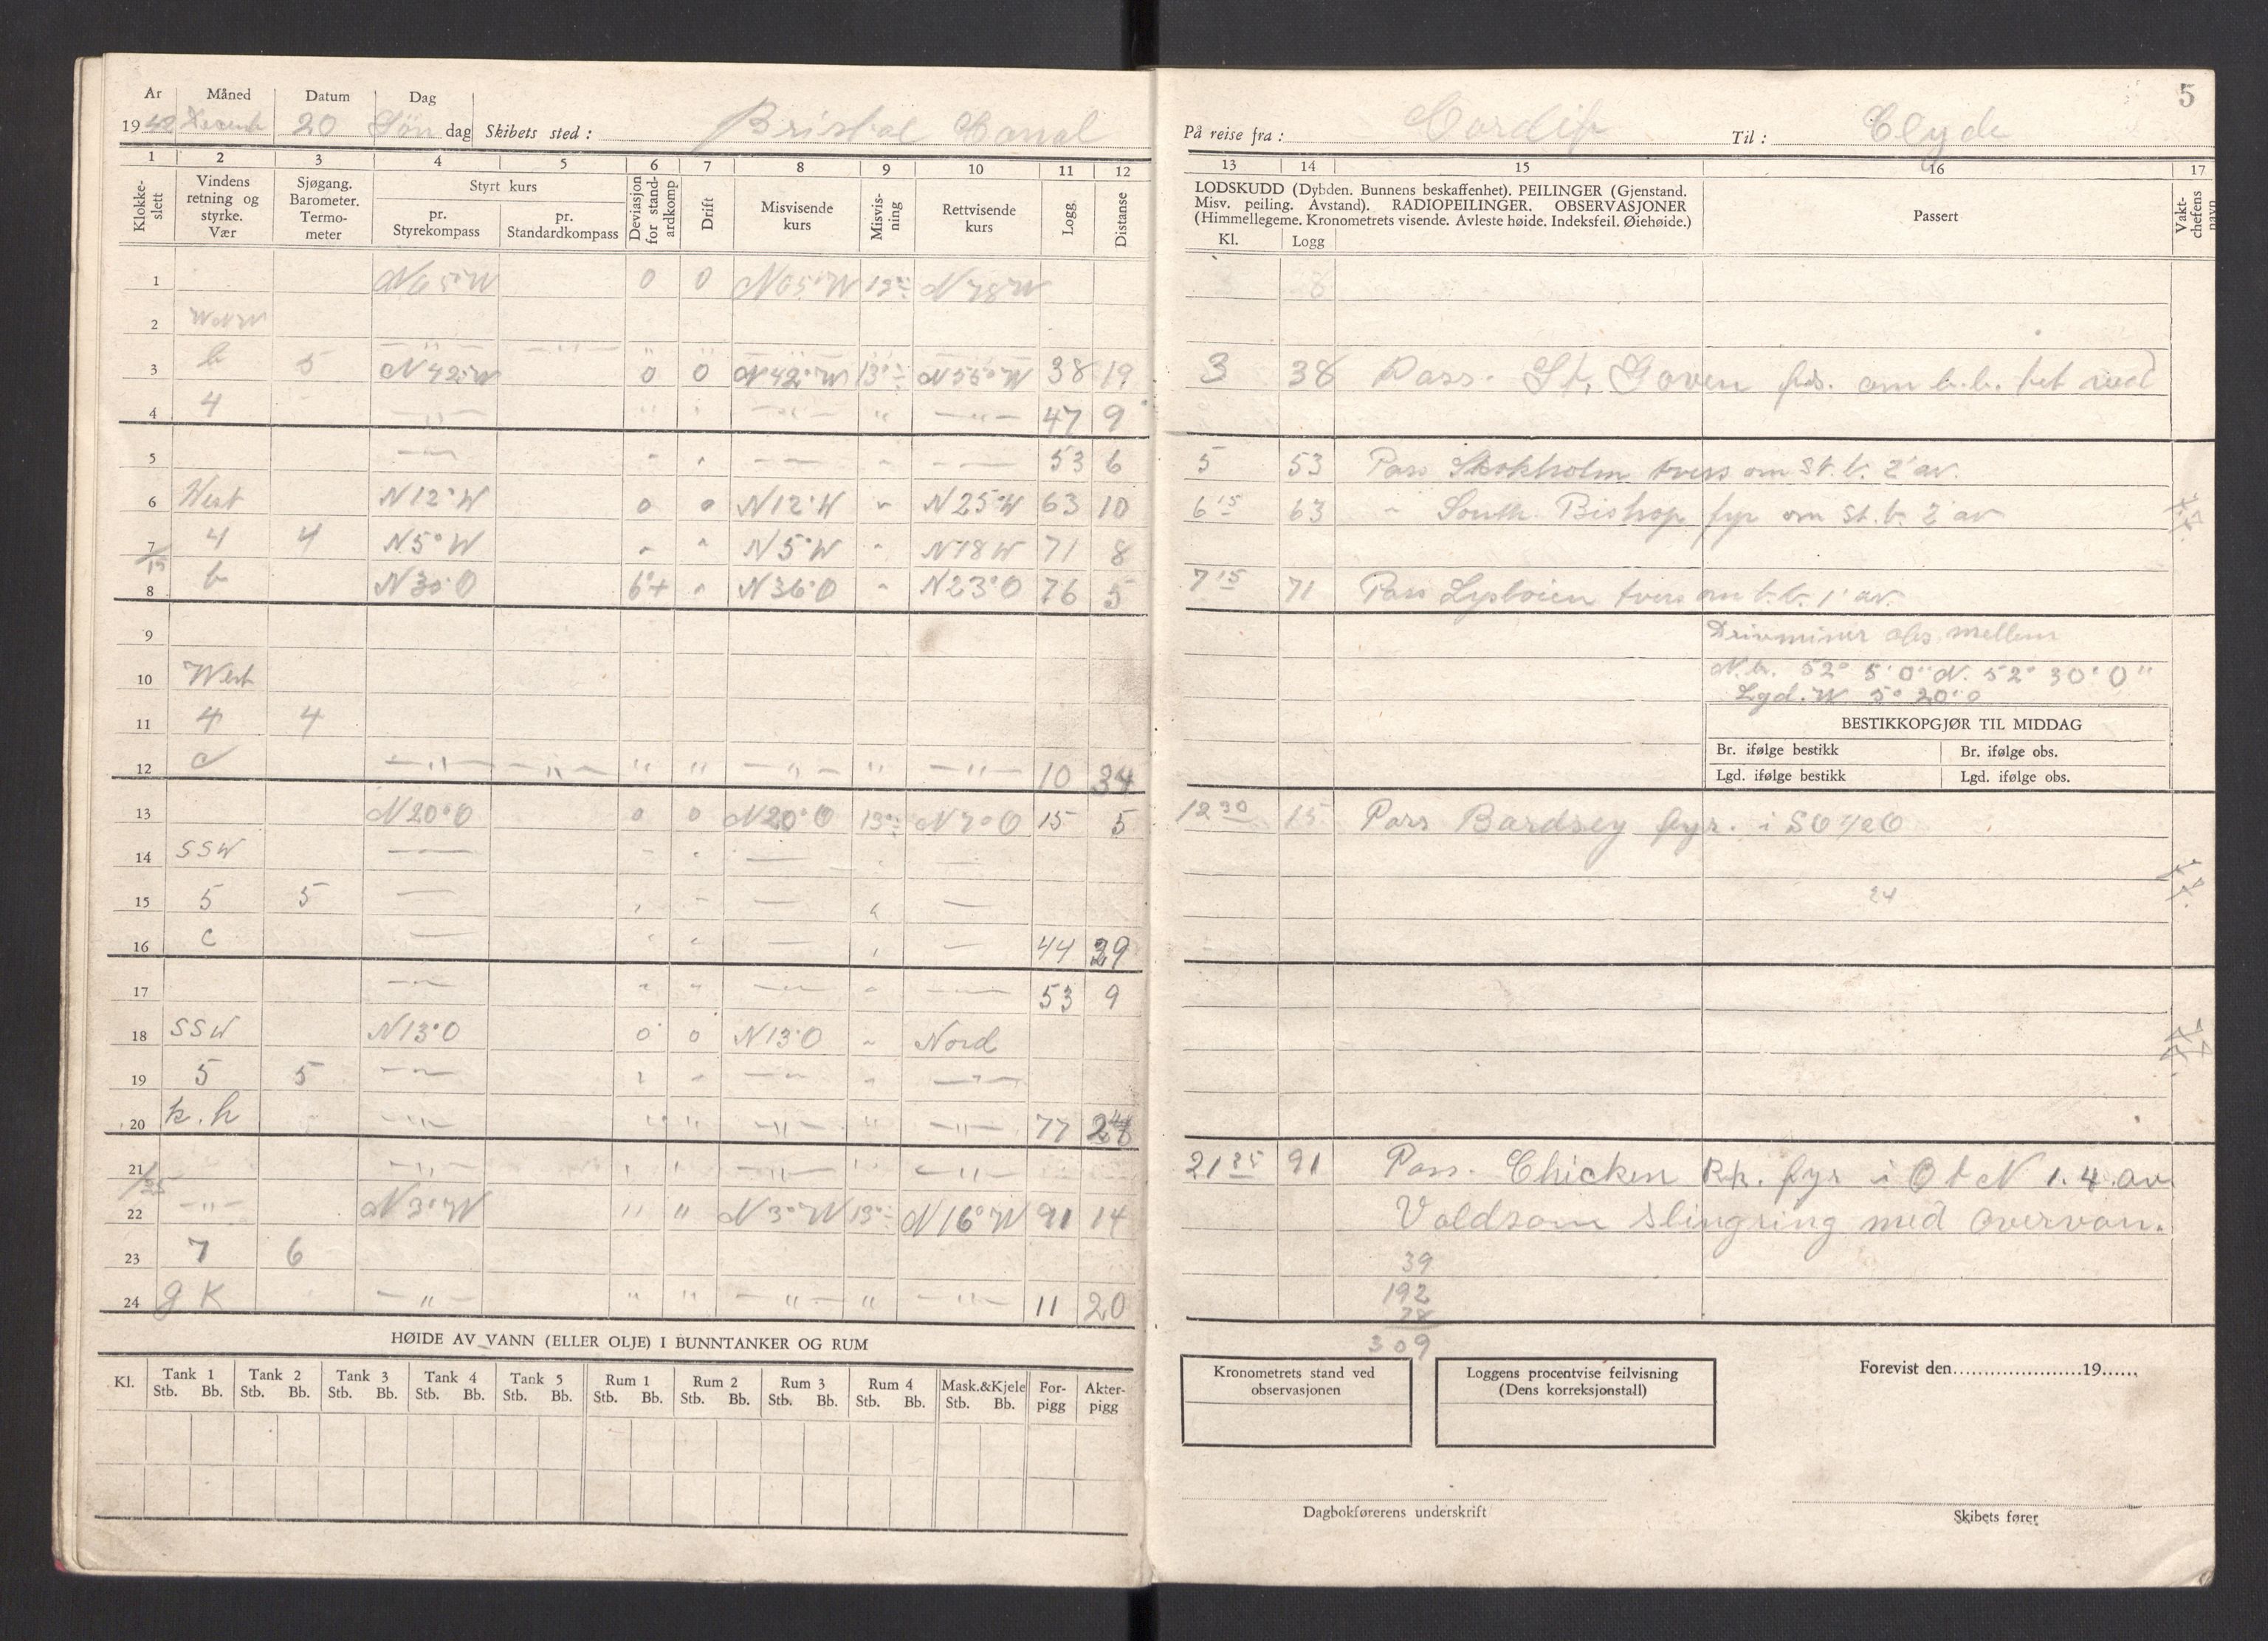 5
År Måned Datum Dag
1942 Decemb 20 Søn dag Skibets sted: Bristol Canal
På reise fra: Cardif Til: Clyde
1 2 3 4 5 6 7 8 9 10 11 12
13 14 15 16 17
Klokkeslett
Vindens retning og styrke. Vær
Sjøgang. Barometer. Termometer
Styrt kurs
pr. Styrekompass
pr. Standardkompass
Deviasjon for standardkomp
Drift
Misvisende kurs
Misvisning
Rettvisende kurs
Logg.
Distanse
LODSKUDD (Dybden. Bunnens beskaffenhet). PEILINGER (Gjenstand.
Misv. peiling. Avstand). RADIOPEILINGER. OBSERVASJONER
(Himmellegeme. Kronometrets visende. Avleste høide. Indeksfeil. Øiehøide.)
Kl. Logg
Passert
Vaktchefens navn
1 N65°W 0 0 N65°W 13°÷ N78W
2 WNW
3 b 5 N42°W 0 0 N42°W 13°÷ N55°W 38 19
4 4 —"— " " —"— " —"— 47 9
5 —"— " " —"— " —"— 53 6
6 West N12°W 0 0 N12°W " N25°W 63 10
7/15 4 4 N5°W " " N5°W " N18W 71 8
8 b N30°O 6°+ " N36°O " N23°O 76 5
9
10 West
11 4 4
12 c —"— —"— " " —"— " —"— 10 34
13 N20°O 0 0 N20°O 13°÷ N7°O 15 5
14 SSW — " " — " —
15 5 5 — " " — " —
16 c — " " — " — 44 29
17 —"— " " —"— " —"— 53 9
18 SSW N13°O 0 0 N13°O " Nord
19 5 5 —"— " " —"— " —"—
20 k.h —"— " " —"— " —"— 77 24
21/25 —"— " " —"— " —"—
22 —"— N3°W " " N3°W 13°÷ N16°W 91 14
23 7 6
24 g K —"— " " —"— " —"— 11 20
3 38 Pass. St. Goven fys. om b.b. tet ved
5 53 Pass Skokholm tvers om St.b. 2' av.
6 15 63 " South Bishop fyr om St.b. 2' av
7 15 71 Pass Lysboien tvers om b.b. 1' av.
Drivminer obs. mellem
N.b. 52° 5' 0" N. 52° 30' 0"
Lgd. W. 5° 20' 0
BESTIKKOPGJØR TIL MIDDAG
Br. ifølge bestikk Br. ifølge obs.
Lgd. ifølge bestikk Lgd. ifølge obs.
12 30 15 Pass Bardsey fyr. i SO½O
24
21 25 91 Pass. Chicken Rk. fyr i O t N 1.4 av.
Voldsom slingring med overvan.
39
192
78
309
HØIDE AV VANN (ELLER OLJE) I BUNNTANKER OG RUM
Kl. Tank 1 Tank 2 Tank 3 Tank 4 Tank 5 Rum 1 Rum 2 Rum 3 Rum 4 Mask.&Kjele Forpigg Akterpigg
Stb. Bb. Stb. Bb. Stb. Bb. Stb. Bb. Stb. Bb. Stb. Bb. Stb. Bb. Stb. Bb. Stb. Bb. Stb. Bb.
Kronometrets stand ved observasjonen
Loggens procentvise feilvisning (Dens korreksjonstall)
Forevist den......................19......
Dagbokførerens underskrift
Skibets fører